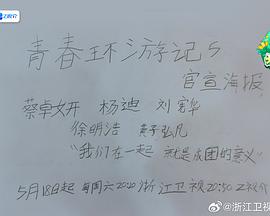 青春环游记5
官宣海报
蔡卓妍 杨迪 刘宪华
徐明浩 黄子弘凡
"我们在一起 就是成团的意义"
5月18日起 每周六2020 浙江卫视20:50 Z视介
@浙江卫视